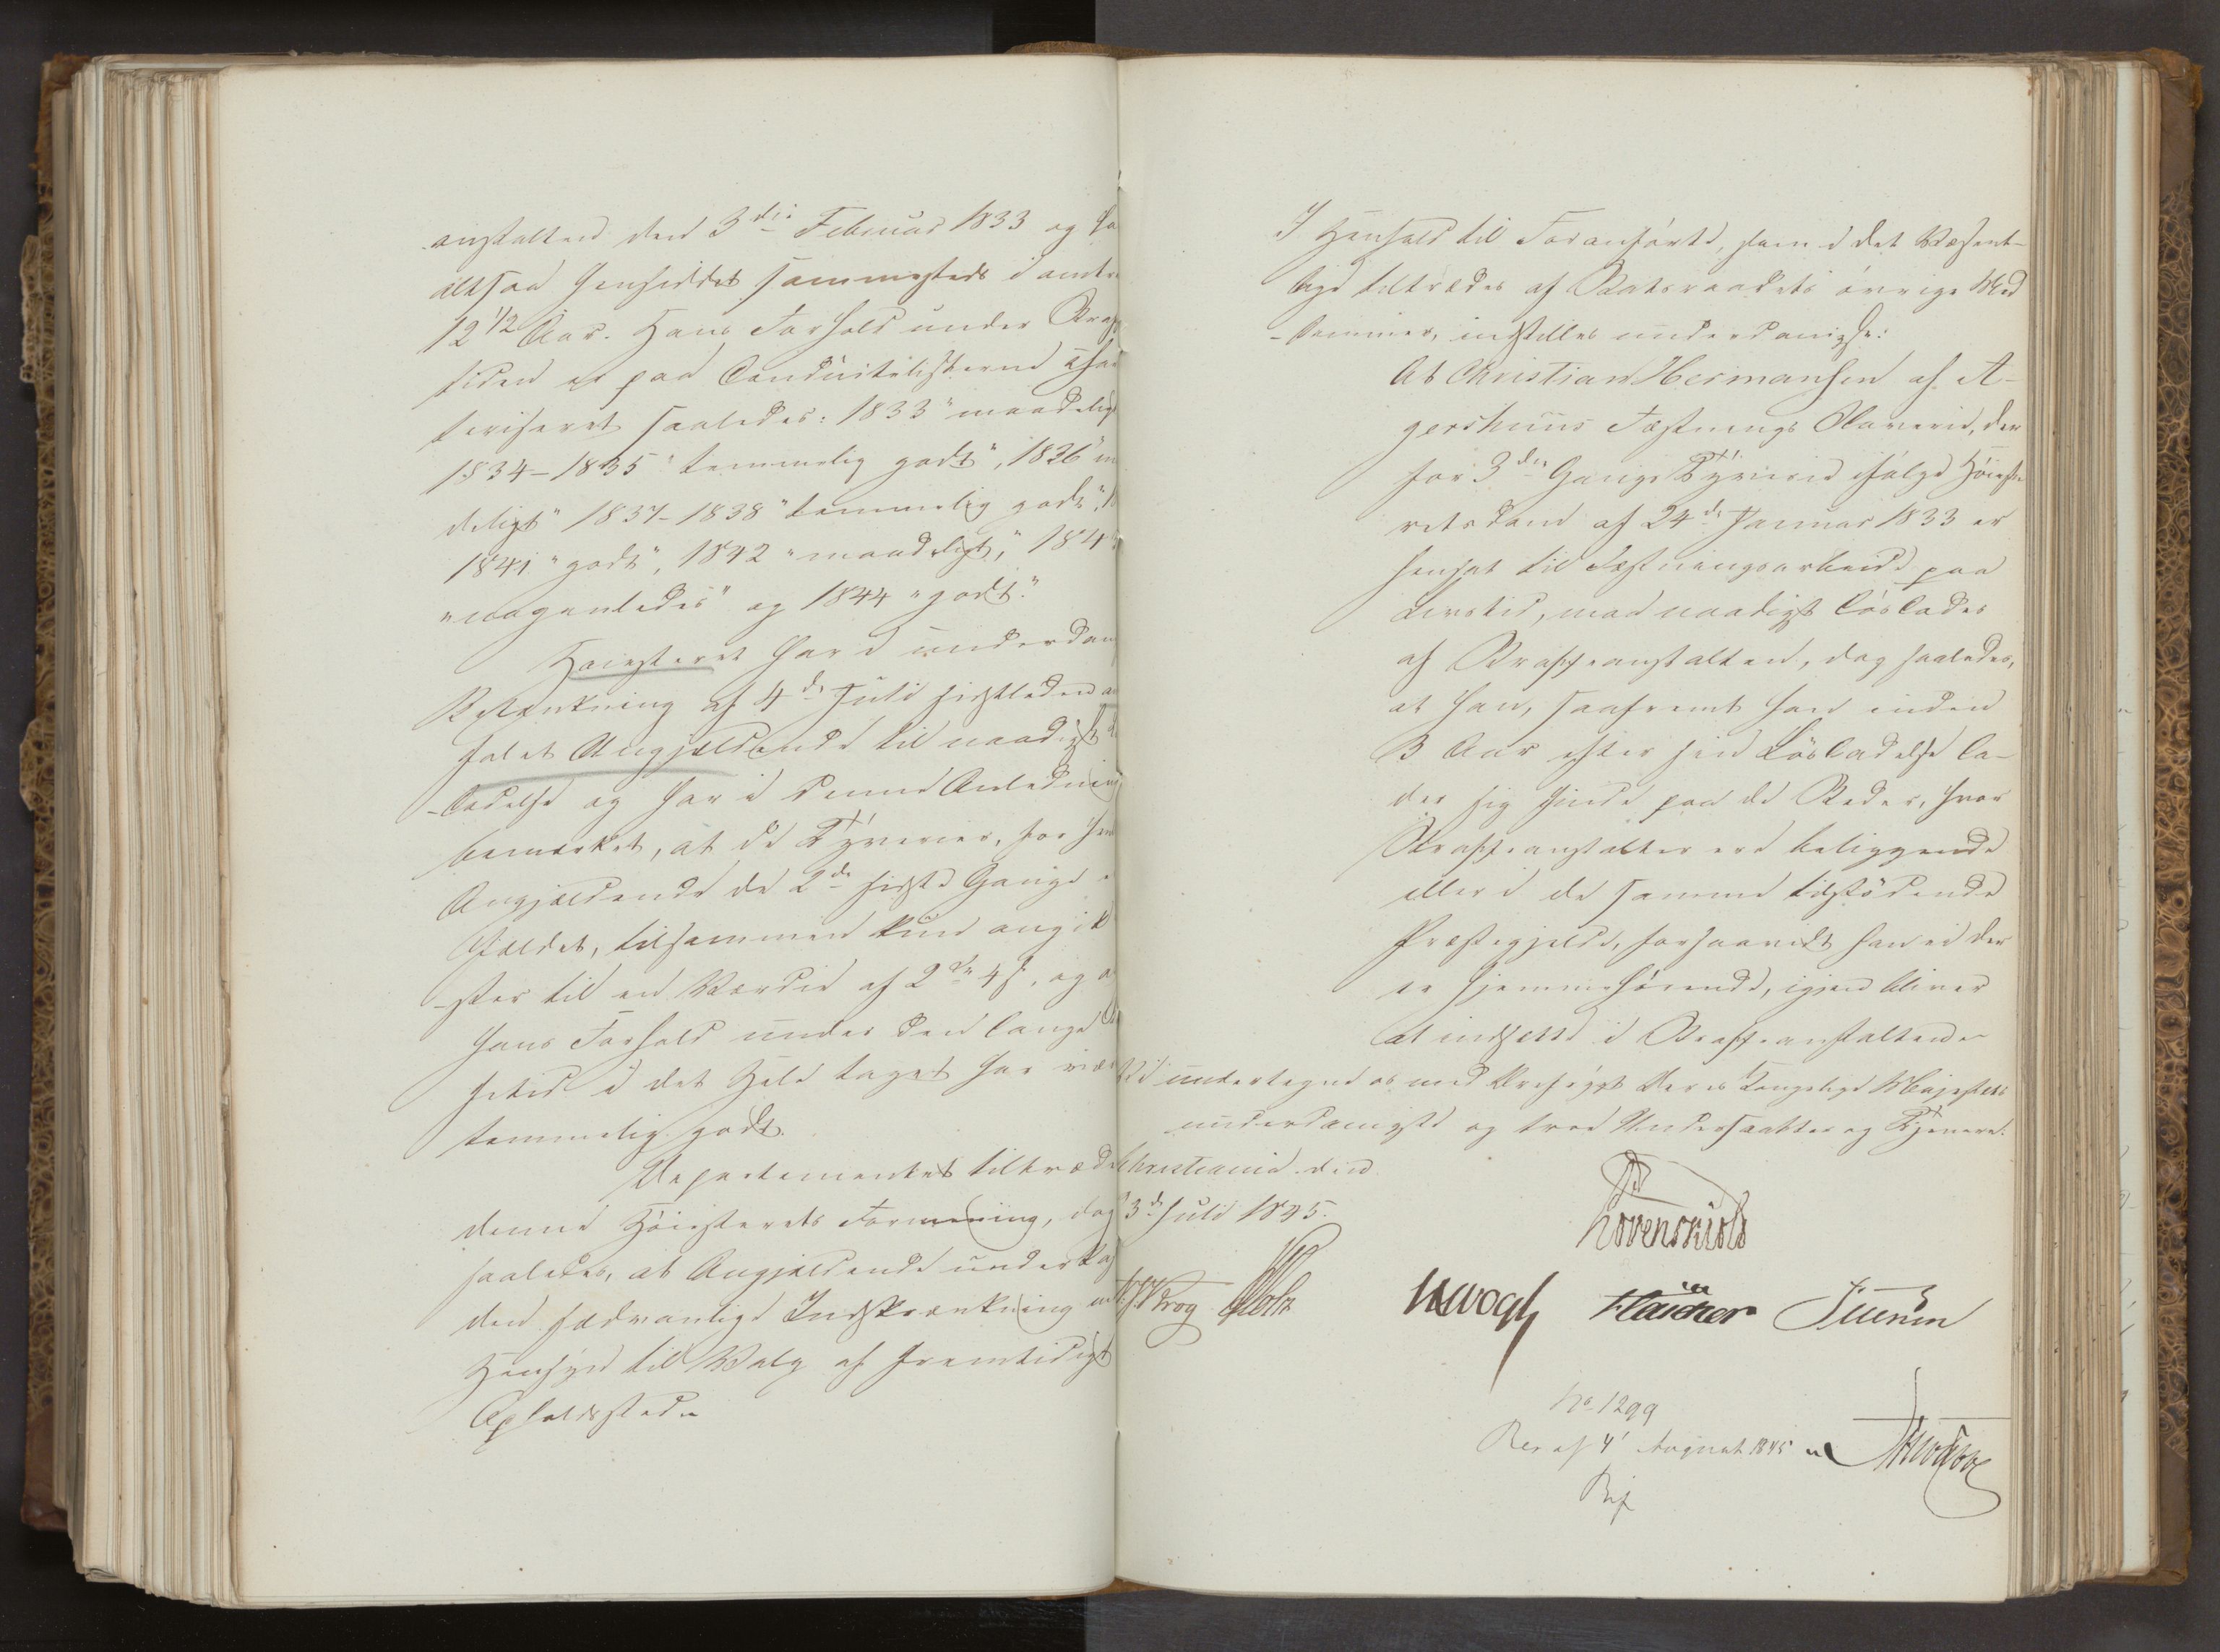 anstalten den 3die Februar 1833 og ha
altsaa hensiddet sammesteds i omtre
12 1/2 Aar. Hans Forhold under Straf
tiden er paa Conduitelisterne char
teriseret saaledes: 1833 "maadeligt
1834-1835 "temmelig godt", 1836 "m
deligt" 1837-1838 "temmelig godt",
1841 "godt", 1842 "maadeligt," 184
"nogenledes" og 1844 "godt."
Høiesteret har i underdan
Betænkning af 4de Juli sidstleden an
falet Angjeldende til naadigst
-ladelse og har i denne Anledning
bemærket, at de Tyverier, for hvi
Angjeldende de 2de sidste Gange
fældet, tilsammen kun angik
-ster til en Værdie af 2 4 s, og a
hans Forhold under den lange
fetid i det Hele taget har vær
temmelig godt.
Departementet tiltræd
denne Høiesterets Formening, dog
saaledes, at Angjeldende underka
den sædvanlige Indskrænkning
Hensyn til Valg af fremtidigt
Opholdssted.
I Henhold til Foranførte, som i det Væsent-
lige tiltrædes af Statsraadets øvrige Med
-lemmer, indstilles underdanigst:
At Christian Hermansen af A-
gershuus Fæstnings Slaverie, der
for 3die Gangs Tyverie ifølge Høieste
retsdom af 24de Januar 1833 er
hensat til Fæstningsarbeide paa
Livstid, maa naadigst løslades
af Straffeanstalten, dog saaledes,
at han, saafremt han inden
3 Aar efter sin Løsladelse la-
der sig finde paa de Steder, hvor
Straffeanstalter ere beliggende
eller i de samme tilstødende
Præstegjelde, forsaavidt han ei der
er hjemmehørende, igjen bliver
at indsætte i Straffeanstalten.
Vi undertegne os med Ærefrygt Deres Kongelige Majestæts
underdanigste og troe Undersaatter og Tjenere.
Christiania den
3de Juli 1845.
Løvenskiold
Krog Holst Vogt Flaischer Steenen
No 1299
Res af 4 August 1845